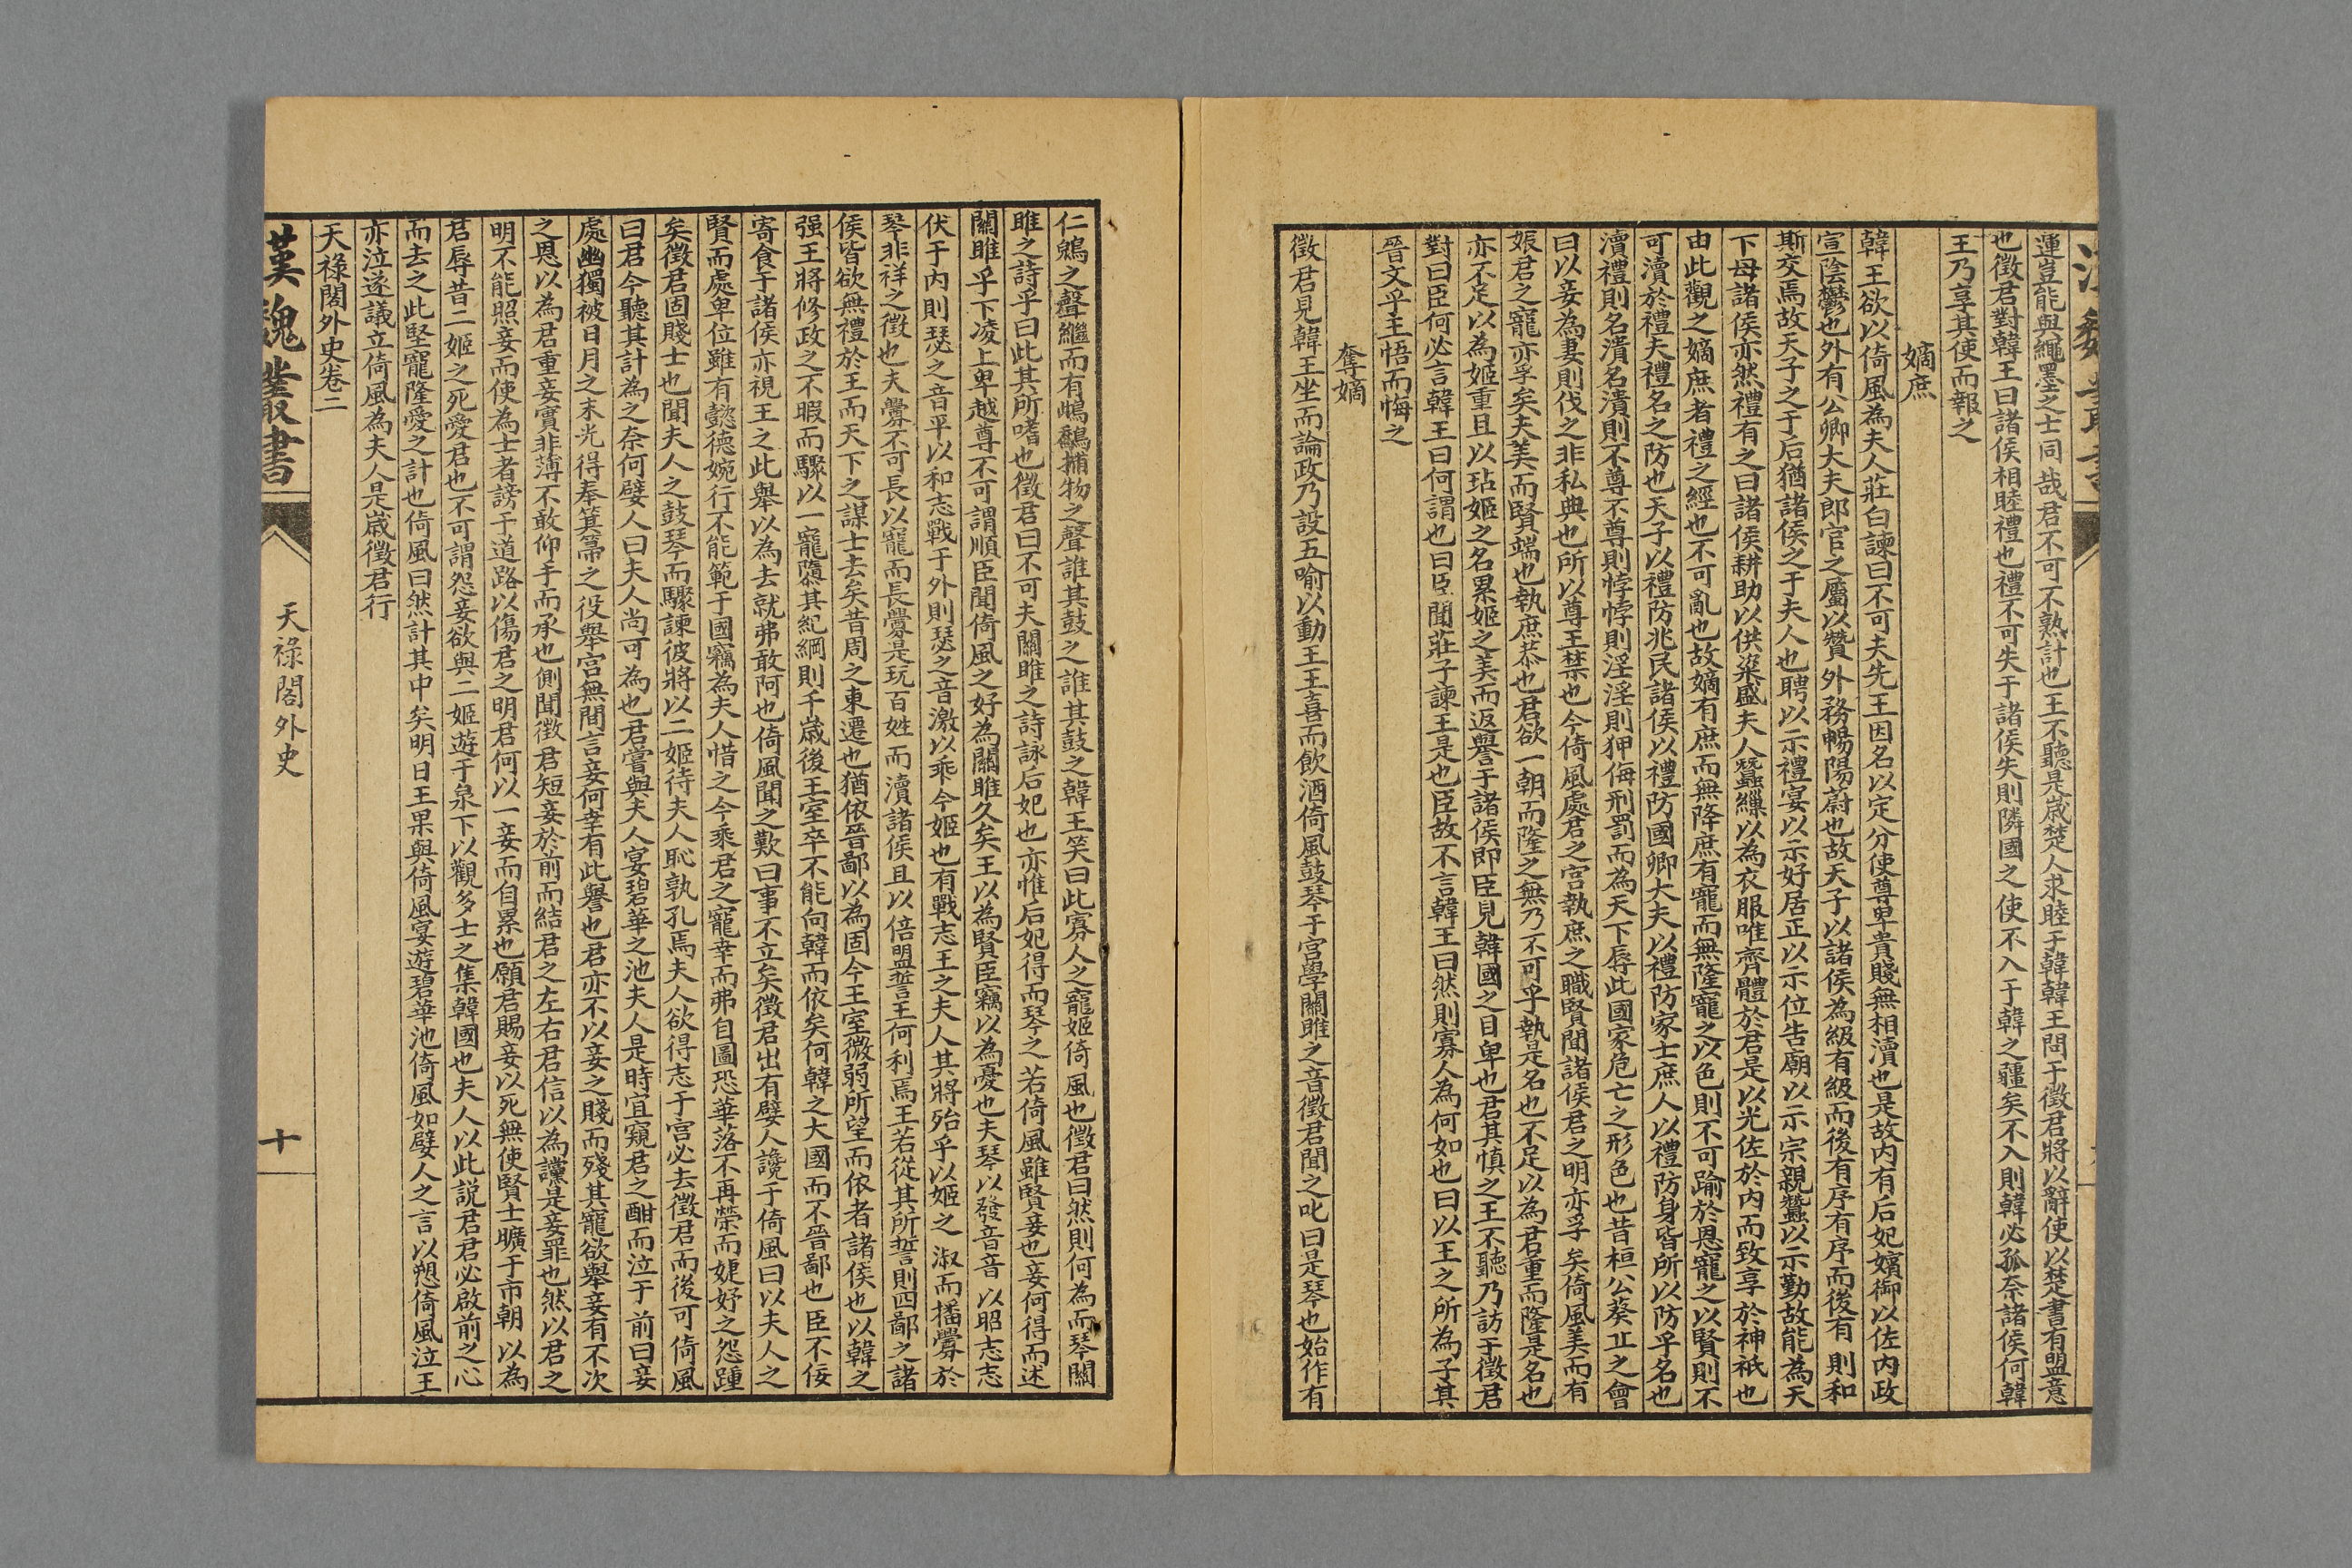 運豈能與繩墨之士同哉君不可不熟計也王不聽是歲楚人求睦于韓韓王問于徵君將以辭使以楚書有盟意
也徵君對韓王曰諸侯相睦禮也禮不可失于諸侯失則隣國之使不入于韓之疆矣不入則韓必孤奈諸侯何韓
王乃享其使而報之
嫡庶
韓王欲以倚風為夫人莊白諫曰不可夫先王因名以定分使尊卑貴賤無相瀆也是故内有后妃嬪御以佐内政
宣陰鬱也外有公卿大夫郎官之屬以贊外務暢陽蔚也故天子以諸侯為級有級而後有序有序而後有則和
斯交焉故天子之于后猶諸侯之于夫人也聘以示禮宴以示好居正以示位告廟以示宗親蠶以示勤故能為天
下母諸侯亦然禮有之曰諸侯耕助以供粢盛夫人蠶繅以為衣服唯齊體於君是以光佐於内而致享於神祇也
由此觀之嫡庶者禮之經也不可亂也故嫡有庶而無降庶有寵而無隆寵之以色則不可踰於恩寵之以賢則不
可瀆於禮夫禮名之防也天子以禮防兆民諸侯以禮防國卿大夫以禮防家士庶人以禮防身皆所以防乎名也
瀆禮則名潰名潰則不尊不尊則悖悖則淫淫則狎侮刑罰而為天下辱此國家危亡之形色也昔桓公葵丘之會
曰以妾為妻則伐之非私典也所以尊王禁也今倚風處君之宮執庶之職賢聞諸侯君之明亦孚矣倚風美而有
娠君之寵亦孚矣夫美而賢端也執庶恭也君欲一朝而隆之無乃不可乎執是名也不足以為君重而隆是名也
亦不足以為姬重且以玷姬之名累姬之美而返譽于諸侯即臣見韓國之目卑也君其慎之王不聽乃訪于徵君
對曰臣何必言韓王曰何謂也曰臣聞莊子諫王是也臣故不言韓王曰然則寡人為何如也曰以王之所為子其
晉文乎王悟而悔之
奪嫡
徵君見韓王坐而論政乃設五喻以動王王喜而飲酒倚風鼓琴于宮學關雎之音徵君聞之叱曰是琴也始作有
仁鴳之聲繼而有鴟鸇捕物之聲誰其鼓之誰其鼓之韓王笑曰此寡人之寵姬倚風也徵君曰然則何為而琴關
雎之詩乎曰此其所嗜也徵君曰不可夫關雎之詩詠后妃也亦惟后妃得而琴之若倚風雖賢妾也妾何得而述
關雎乎下凌上卑越尊不可謂順臣聞倚風之好為關雎久矣王以為賢臣竊以為憂也夫琴以發音音以昭志志
伏于内則瑟之音平以和志戰于外則瑟之音激以乖今姬也有戰志王之夫人其將殆乎以姬之淑而播釁於
琴非祥之徵也夫釁不可長以寵而長釁是玩百姓而瀆諸侯且以倍盟誓王何利焉王若從其所誓則四鄙之諸
侯皆欲無禮於王而天下之謀士去矣昔周之東遷也猶依晉鄙以為固今王室微弱所望而依者諸侯也以韓之
强王將修政之不暇而驟以一寵隳其紀綱則千歲後王室卒不能向韓而依矣何韓之大國而不晉鄙也臣不佞
寄食于諸侯亦視王之此舉以為去就弗敢阿也倚風聞之歎曰事不立矣徵君出有嬖人讒于倚風曰以夫人之
賢而處卑位雖有懿德婉行不能範于國竊為夫人惜之今乘君之寵幸而弗自圖恐華落不再榮而婕妤之怨踵
矣徵君固賤士也聞夫人之鼓琴而驟諫彼將以二姬待夫人恥孰孔焉夫人欲得志于宮必去徵君而後可倚風
曰君今聽其計為之奈何嬖人曰夫人尚可為也君嘗與夫人宴碧華之池夫人是時宜窺君之酣而泣于前曰妾
處幽獨被日月之末光得奉箕箒之役舉宮無間言妾何幸有此譽也君亦不以妾之賤而殘其寵欲舉妾有不次
之恩以為君重妾實非薄不敢仰乎而承也側聞徵君短妾於前而結君之左右君信以為讜是妾罪也然以君之
明不能照妾而使為士者謗于道路以傷君之明君何以一妾而自累也願君賜妾以死無使賢士曠于市朝以為
君辱昔二姬之死愛君也不可謂怨妾欲與二姬遊于泉下以觀多士之集韓國也夫人以此説君君必啟前之心
而去之此堅寵隆愛之計也倚風曰然計其中矣明日王果與倚風宴遊碧華池倚風如嬖人之言以愬倚風泣王
亦泣遂議立倚風為夫人是歲徵君行
天祿閣外史卷二
漢魏叢書
天祿閣外史
十